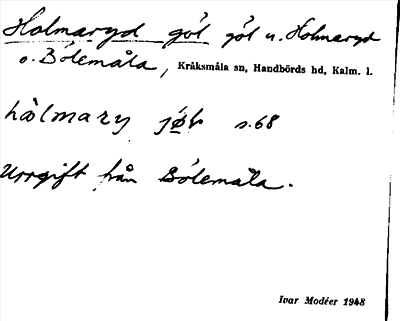 Holmaryd göl göl u. Holmaryd
o. Bölemåla, Kråksmåla sn, Handbörds hd, Kalm. l.
hòlmary jøl s.68
Urrgift från Bölemåla.
Ivar Modéer 1948